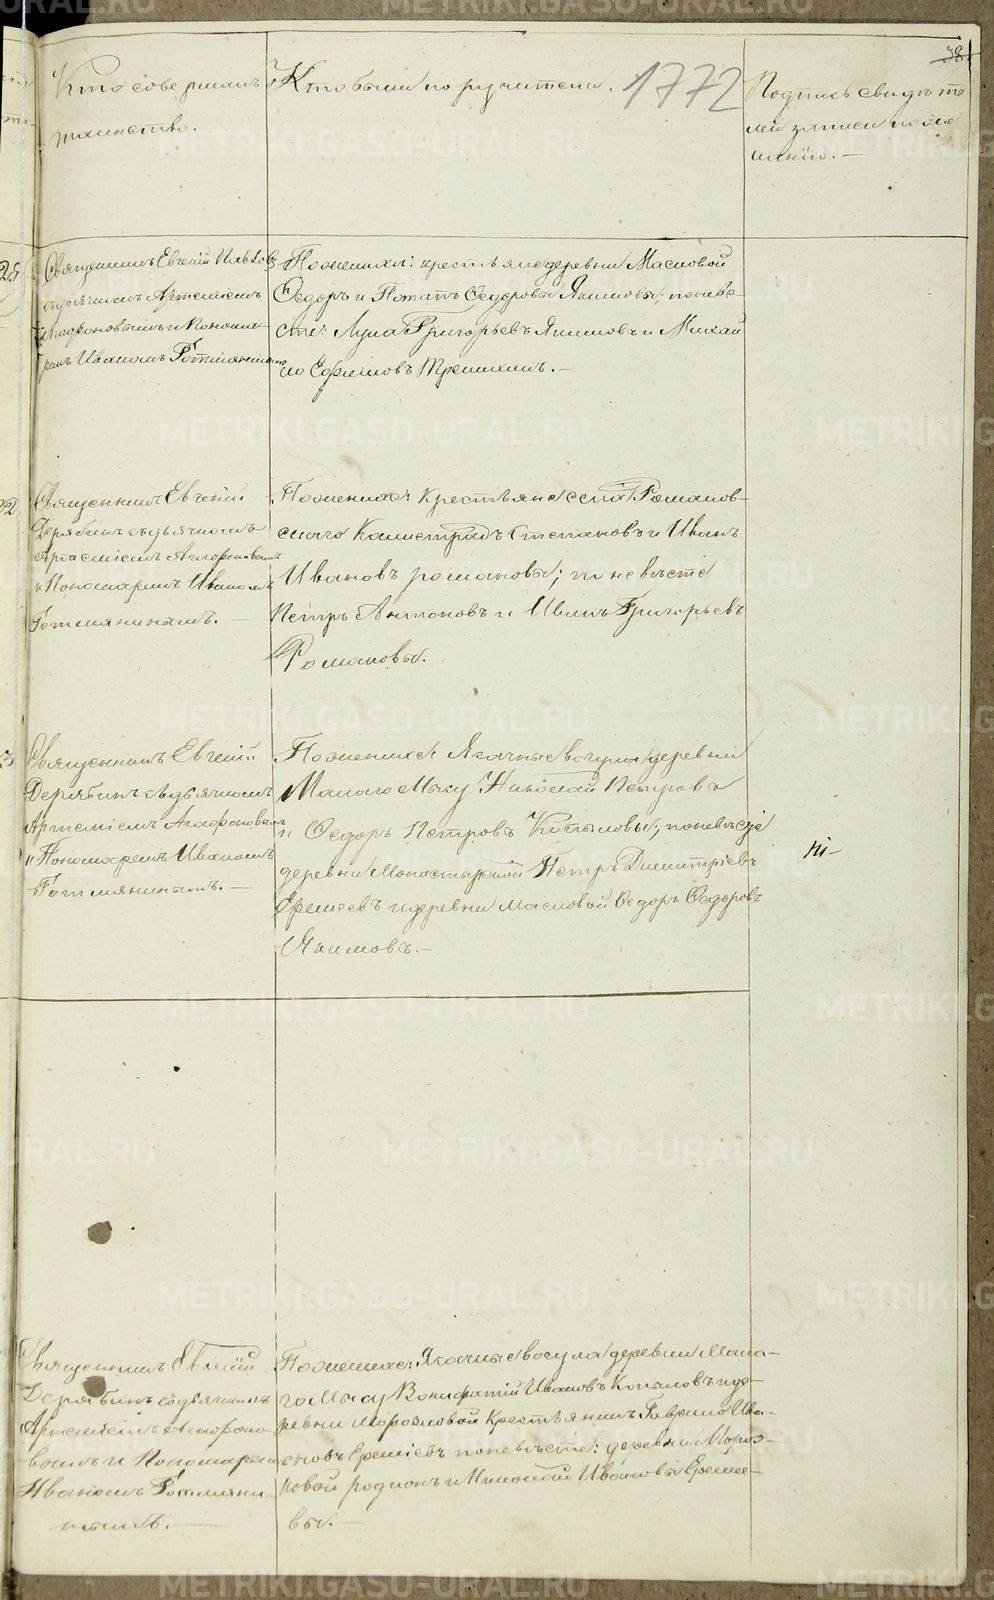 38.
Кто совершалъ
таинство.
Кто были поручители.
1772
Подпись свидѣте
лей записи по же
ланію.—
25
Священникъ Евгеній
съ дьячкомъ Артеміемъ
Агафоновымъ и Понома-
ремъ Иваномъ Готмянинымъ
По женихѣ: крестьяне деревни Масловой
Ѳедоръ и Потапъ Ѳедоровы Якимовы; по невѣ-
стѣ: Лука Григорьевъ Якимовъ и Михай
ло Ефимовъ
Священникъ Евгеній
Дерябинъ съ дьячкомъ
Артеміемъ Агафоновымъ
и Пономаремъ Иваномъ
Готмянинымъ. —
По женихѣ: Крестьяне села Романов-
скаго Калистратъ Степановъ и Иванъ
Ивановъ Романовы; по невѣстѣ
Петръ Антоновъ и Иванъ Григорьевъ
Романовы.
3
Священникъ Евгеній
Дерябинъ съ дьячкомъ
Артеміемъ Агафоновымъ
и Пономаремъ Иваномъ
Готмянинымъ. —
По женихѣ: Ясачные вогулы деревни
Малаго Мысу Николай Петровъ
и Ѳедоръ Петровъ Копыловы; по невѣстѣ
деревни Монастырской Петръ Димитріевъ
Еремеевъ и деревни Масловой Ѳедоръ Ѳедоровъ
Якимовъ.—
Священникъ Евгеній
Дерябинъ съ дьячкомъ
Артеміемъ Агафоно-
вымъ и Пономаремъ
Иваномъ Готмяни-
нымъ. —
По женихѣ: Ясачные вогулы деревни Мала-
го Мысу Вонифатій Ивановъ Копыловъ и де-
ревни Морозковой Крестьянинъ Гаврило Ива-
новъ Еремѣевъ по невѣстѣ: деревни Мороз-
ковой Родіонъ и Николай Ивановы Ереме-
вы. —
METRIKI.GASO-URAL.RU